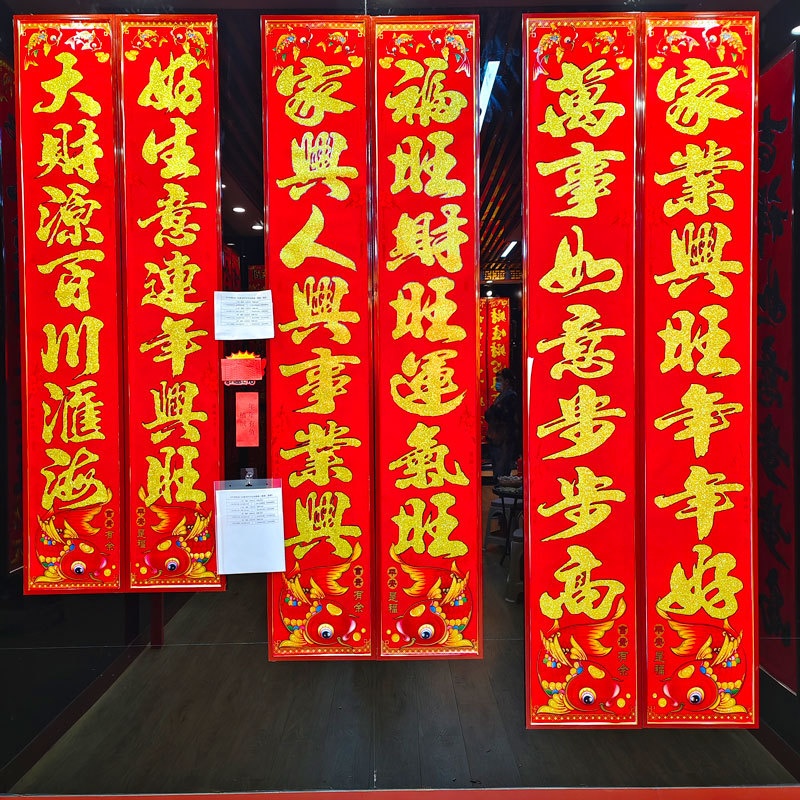 家業興旺年年好
萬事如意步步高
富貴有余
福旺財旺運氣旺
家興人興事業興
富貴有余
好生意連年興旺
大財源百川匯海
富貴有余